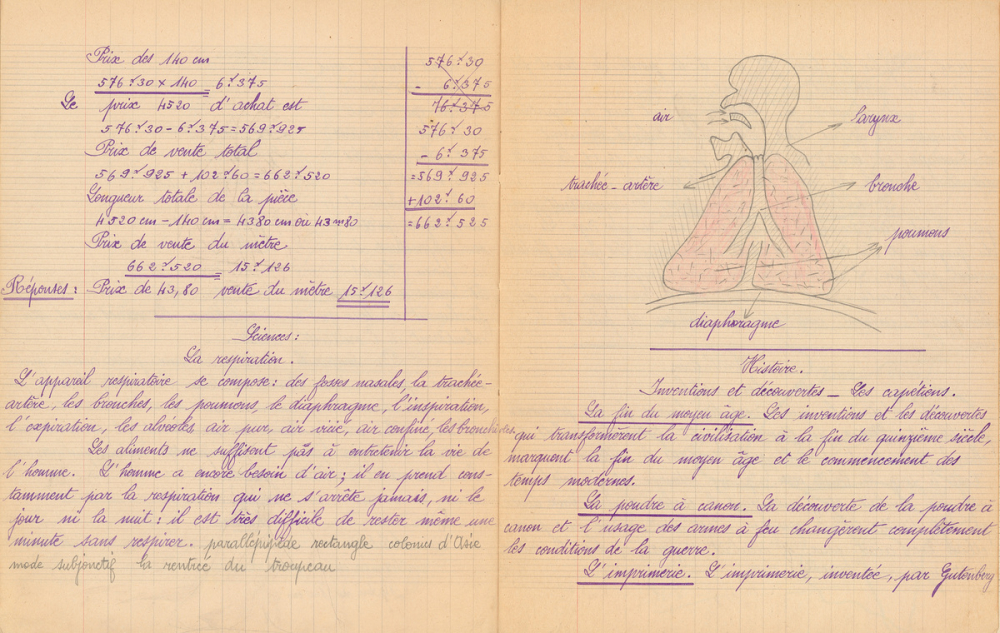 Prix des 140 cm
576f30 x 140 = 6f375
Le prix 4520 d'achat est
576f30 - 6f375 = 569f925
Prix de vente total
569f925 + 102f60 = 662f520
Longueur totale de la pièce
4520 cm - 140 cm = 4380 cm ou 43m80
Prix de vente du mètre
662f520 = 15f126
Réponses : Prix de 43,80 vente du mètre 15f126
576f30
- 6f375
76f375
576f30
- 6f375
=569f925
+102f60
=662f525
Sciences :
La respiration.
L'appareil respiratoire se compose : des fosses nasales, la trachée-
artère, les bronches, les poumons, le diaphragme, l'inspiration,
l'expiration, les alvéoles air pur, air vicié, air confiné, les bronchioles.
Les aliments ne suffisent pas à entretenir la vie de
l'homme. L'homme a encore besoin d'air ; il en prend cons-
tamment par la respiration qui ne s'arrête jamais, ni le
jour ni la nuit : il est très difficile de rester même une
minute sans respirer. parallépipède rectangle colonies d'Asie
mode subjonctif la rentrée du troupeau
air
larynx
trachée-artère
bronche
poumons
diaphragme
Histoire.
Inventions et découvertes - Les capétiens.
La fin du moyen âge. Les inventions et les découvertes
qui transformèrent la civilisation à la fin du quinzième siècle,
marquent la fin du moyen âge et le commencement des
temps modernes.
La poudre à canon. La découverte de la poudre à
canon et l'usage des armes à feu changèrent complètement
les conditions de la guerre.
L'imprimerie. L'imprimerie, inventée, par Gutenberg